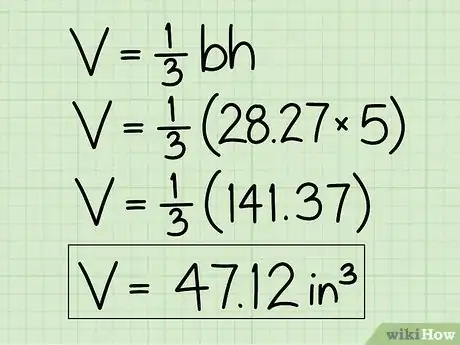 V = 1/3 bh
V = 1/3 (28.27 × 5)
V = 1/3 (141.37)
V = 47.12 in³
wikiHow